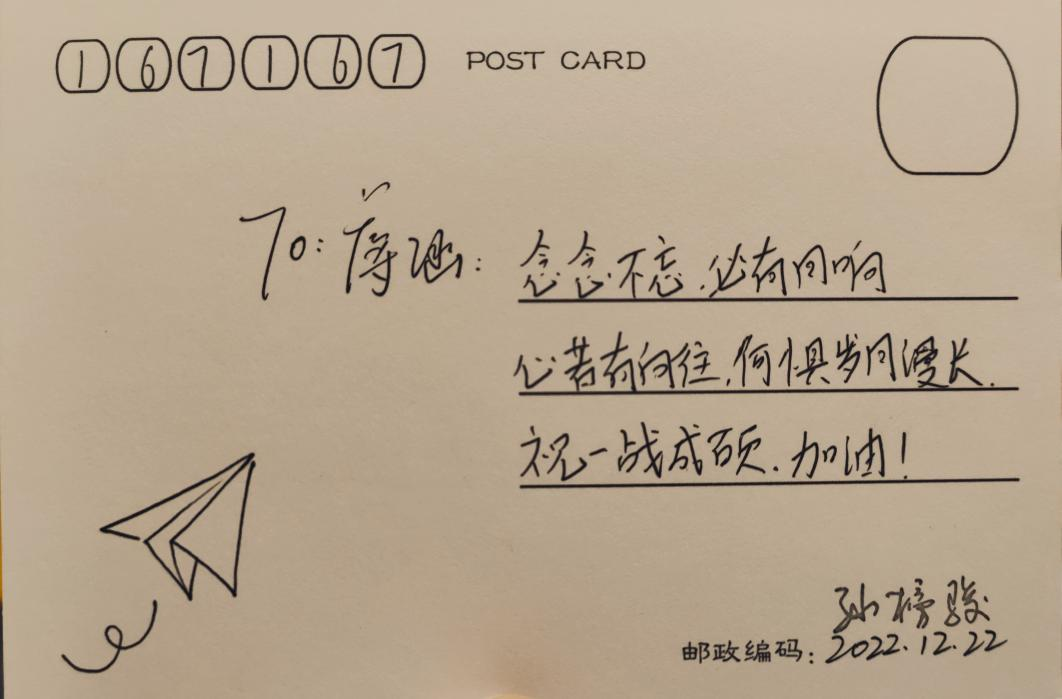 167167 POST CARD
To: 蒋涵: 念念不忘,必有回响
心若有向往,何惧岁月漫长.
祝一战成硕.加油!
孙榜骏
邮政编码: 2022.12.22